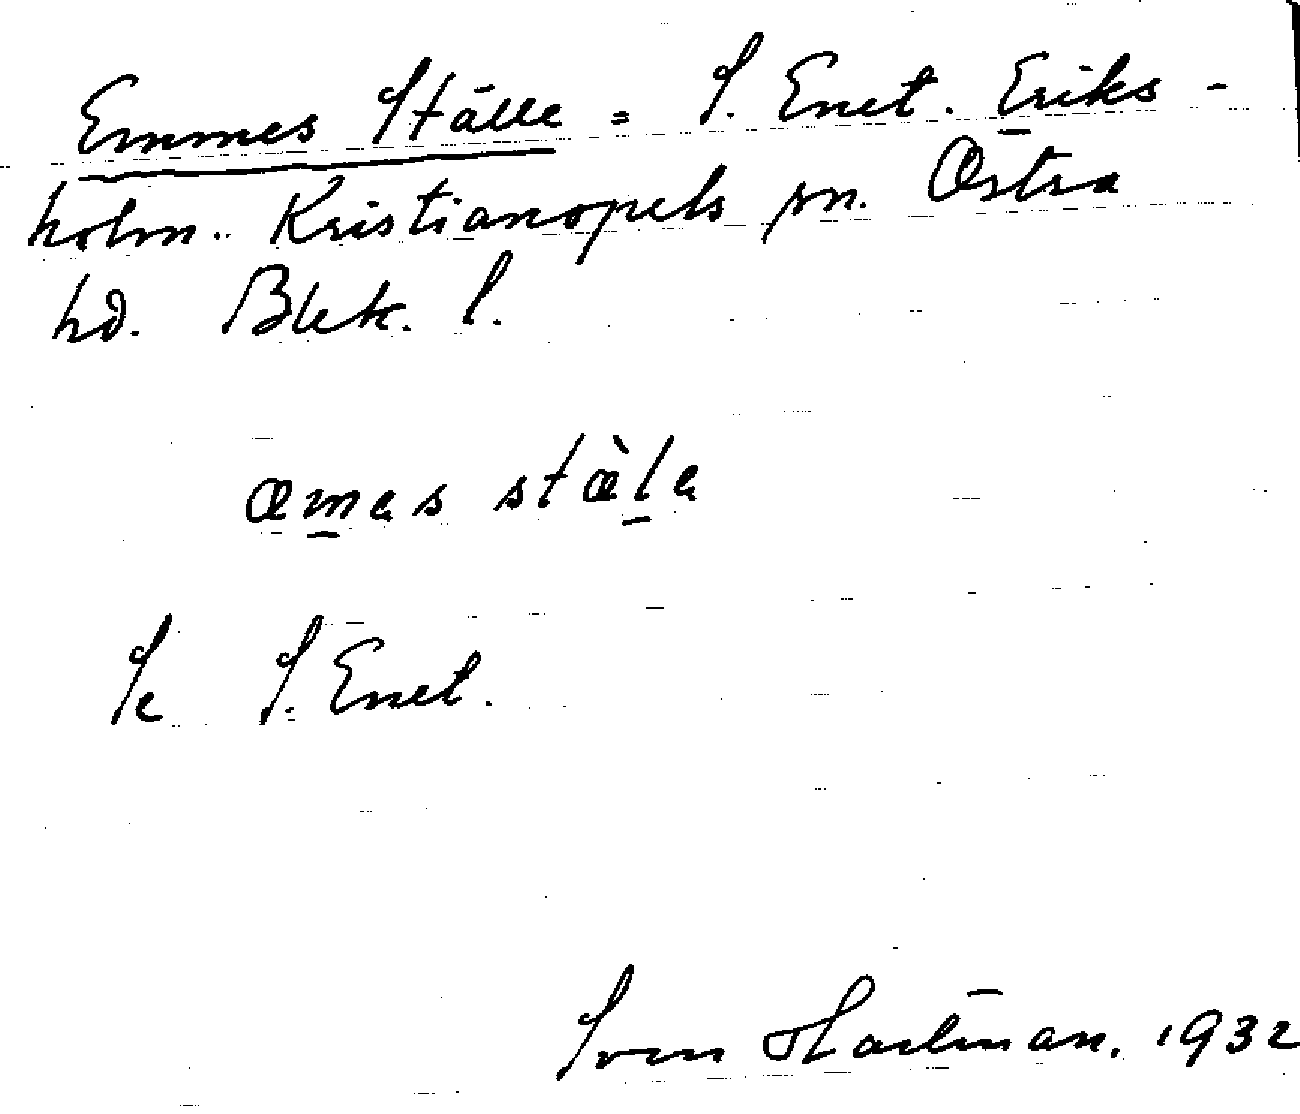 Emmes Ställe = S. Enet. Eriks-
holm. Kristianopels sn. Östra
hd. Blek. l.
æmas stæ̀la
Se S. Enet.
Sven Hartman. 1932